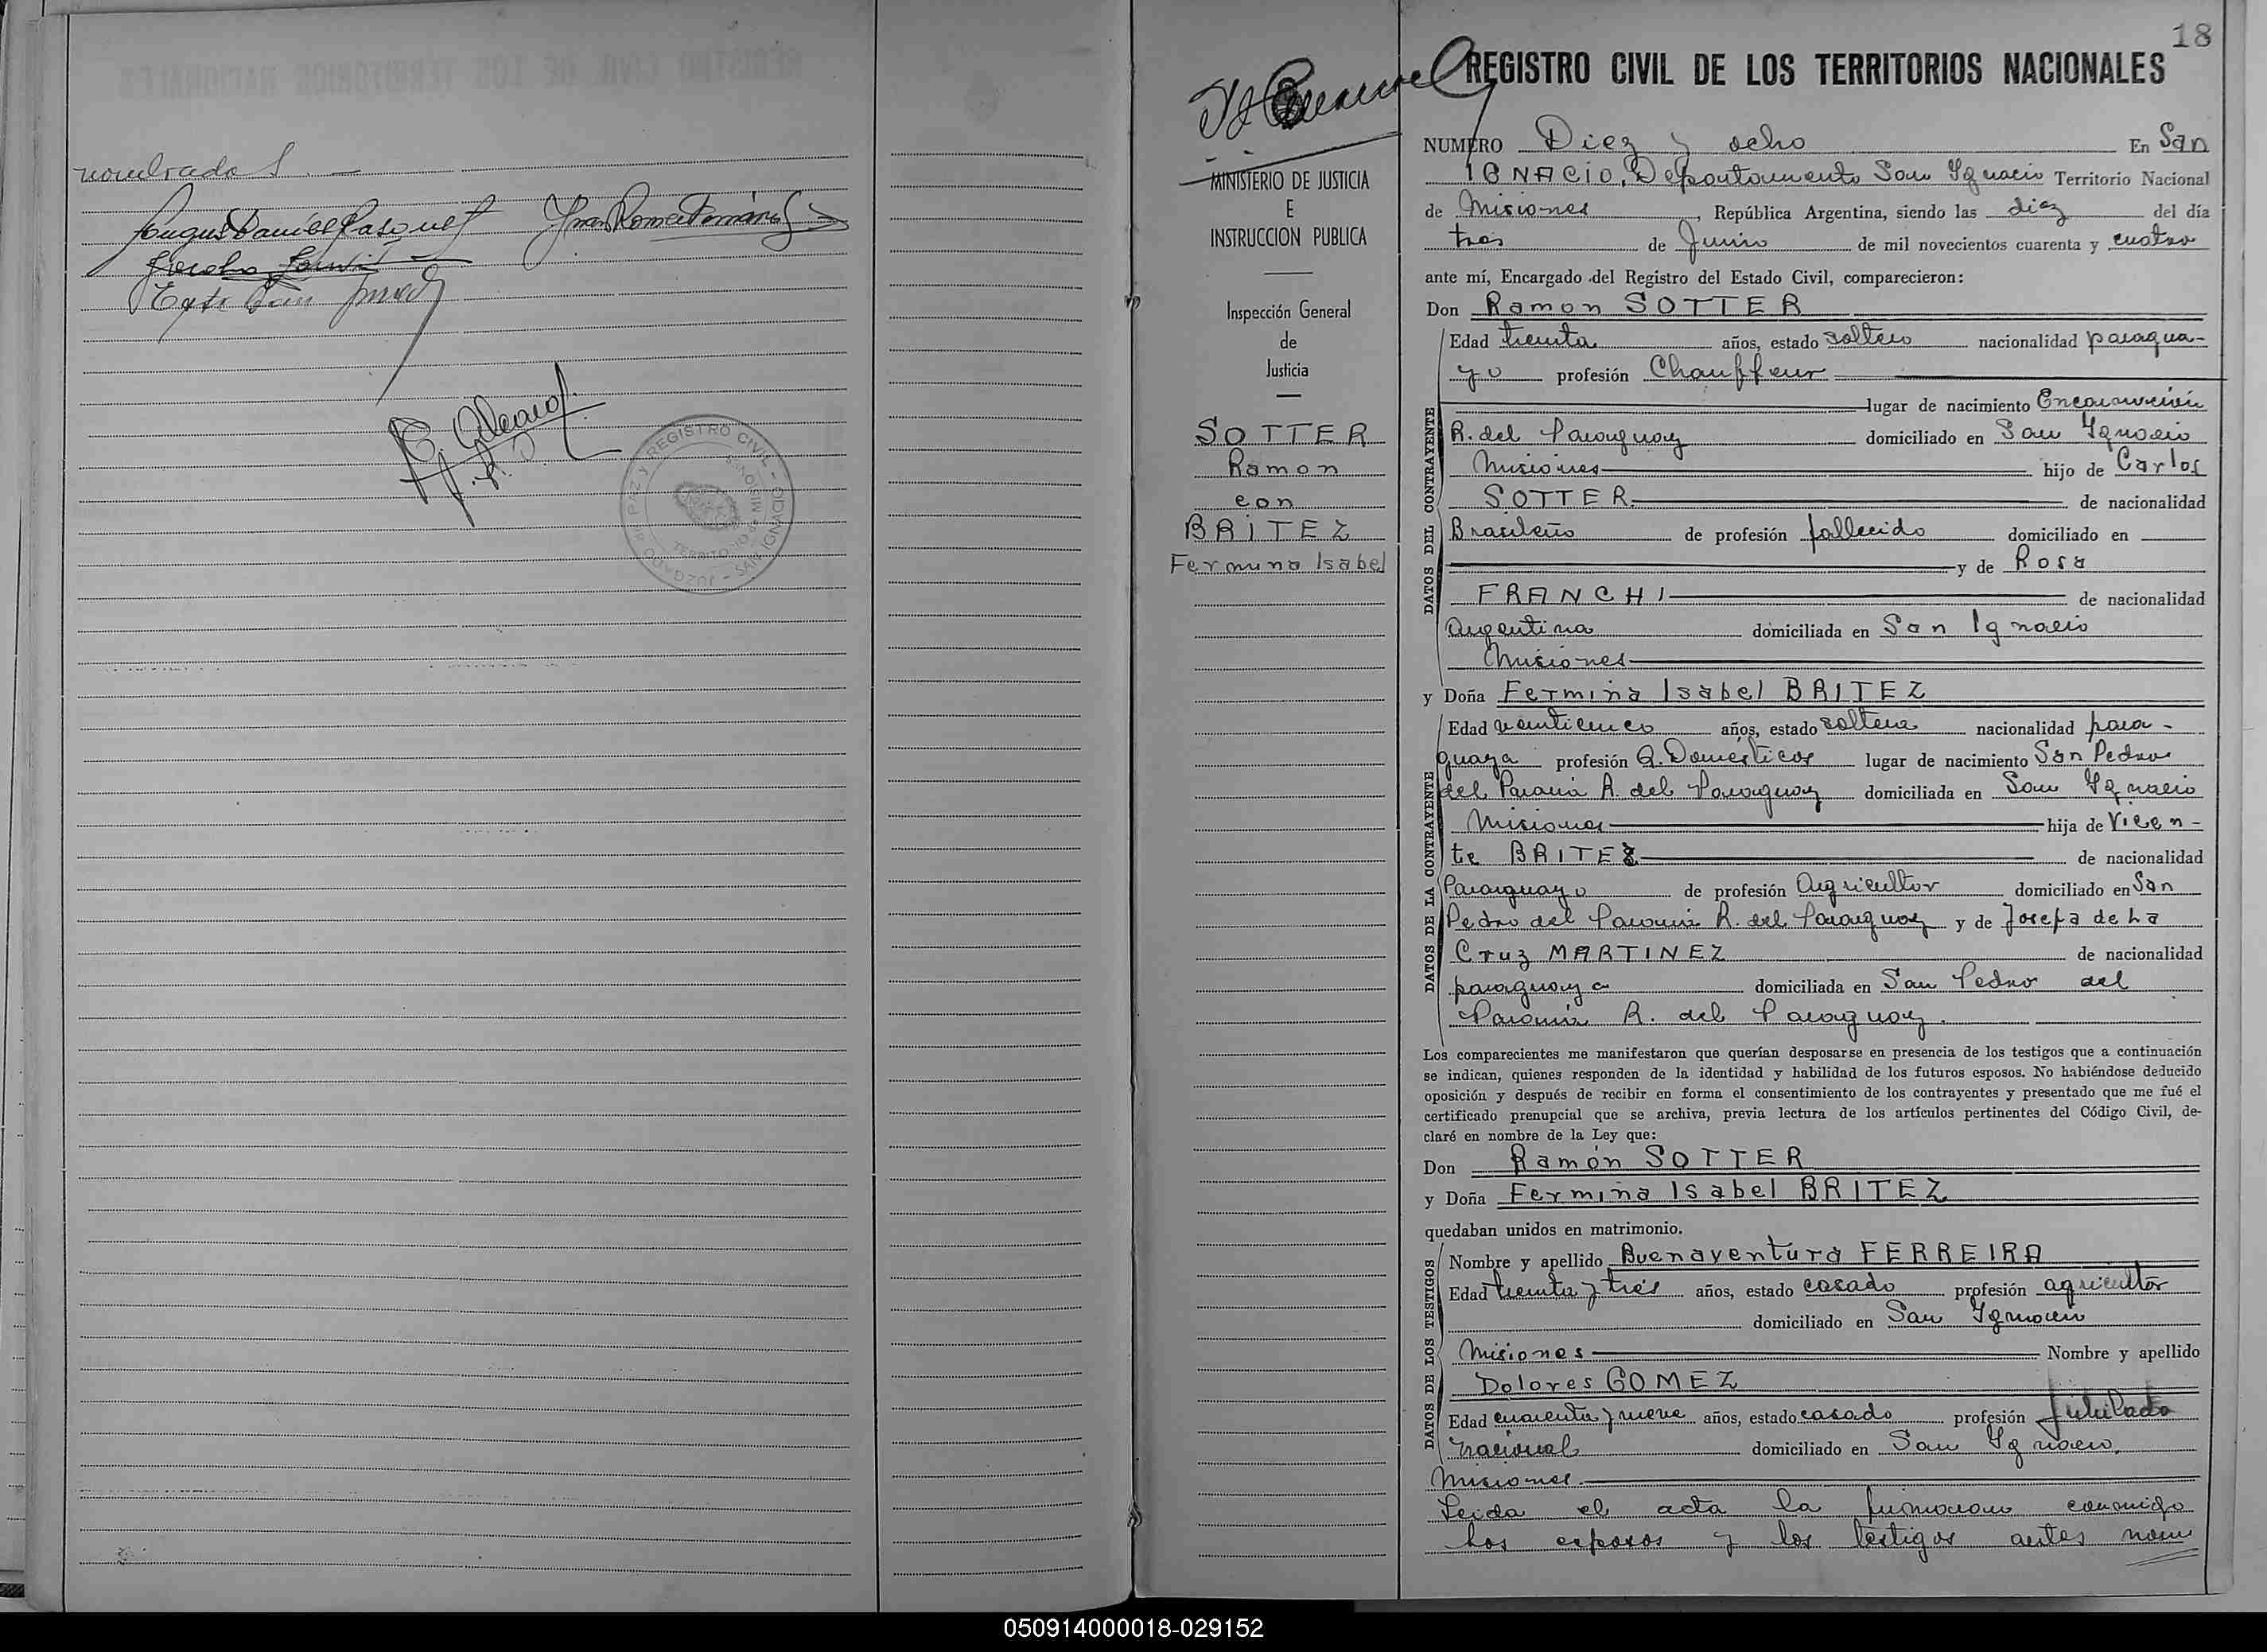 nombrados.
REGISTRO CIVIL
TERRITORIO de MISIONES
JUZGADO DE PAZ Y REGISTRO CIVIL - SAN IGNACIO
18
REGISTRO CIVIL DE LOS TERRITORIOS NACIONALES
MINISTERIO DE JUSTICIA
E
INSTRUCCION PUBLICA
Inspección General
de
Justicia
SOTTER
Ramon
con
BRITEZ
Fermina Isabel
NUMERO Diez y ocho En San
IGNACIO, Departamento San Ignacio Territorio Nacional
de Misiones, República Argentina, siendo las diez del día
tres de Junio de mil novecientos cuarenta y cuatro
ante mí, Encargado del Registro del Estado Civil, comparecieron:
Don Ramon SOTTER
DATOS DEL CONTRAYENTE
Edad treinta años, estado soltero nacionalidad paragua-
yo profesión Chauffeur
lugar de nacimiento Encarnación
R. del Paraguay domiciliado en San Ignacio
Misiones hijo de Carlos
SOTTER de nacionalidad
Brasileño de profesión fallecido domiciliado en
y de Rosa
FRANCHI de nacionalidad
Argentina domiciliada en San Ignacio
Misiones
y Doña Fermina Isabel BRITEZ
DATOS DE LA CONTRAYENTE
Edad veinticinco años, estado soltera nacionalidad para-
guaya profesión Q. Domésticos lugar de nacimiento San Pedro
del Paraná R. del Paraguay domiciliada en San Ignacio
Misiones hija de Vicen-
te BRITEZ de nacionalidad
Paraguayo de profesión Agricultor domiciliado en San
Pedro del Paraná R. del Paraguay y de Josefa de La
Cruz MARTINEZ de nacionalidad
paraguaya domiciliada en San Pedro del
Paraná R. del Paraguay.
Los comparecientes me manifestaron que querían desposarse en presencia de los testigos que a continuación
se indican, quienes responden de la identidad y habilidad de los futuros esposos. No habiéndose deducido
oposición y después de recibir en forma el consentimiento de los contrayentes y presentado que me fué el
certificado prenupcial que se archiva, previa lectura de los artículos pertinentes del Código Civil, de-
claré en nombre de la Ley que:
Don Ramón SOTTER
y Doña Fermina Isabel BRITEZ
quedaban unidos en matrimonio.
DATOS DE LOS TESTIGOS
Nombre y apellido Buenaventura FERREIRA
Edad treinta y tres años, estado casado profesión agricultor
domiciliado en San Ignacio
Misiones Nombre y apellido
Dolores GOMEZ
Edad cuarenta y nueve años, estado casado profesión jubilado
nacional domiciliado en San Ignacio,
Misiones.
Leida el acta la firmaron conmigo
los esposos y los testigos antes nom
050914000018-029152